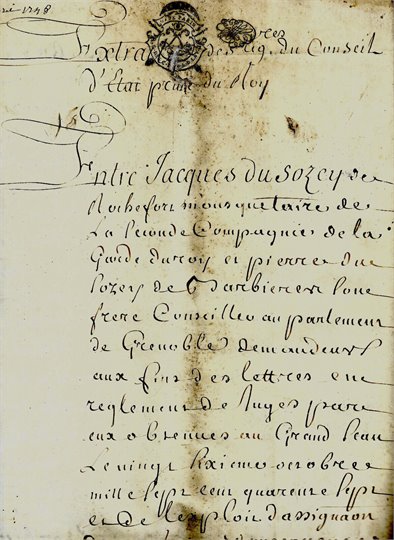 1748
Extrait des Reg.res du Conseil
d'Etat privé du Roy
Entre Jacques du Sozey de
Rochefort mousquetaire de
La seconde Compagnie de la
Garde du roy et pierre du
sozey de Barbieres son
frere Conseiller au parlement
de Grenoble demandeurs
aux fins des lettres en
reglement de Juges par
eux obtenues au Grand sceau
Le vingt sixieme octobre
mille sept cent quarente sept
et de l'exploit d'assignaon